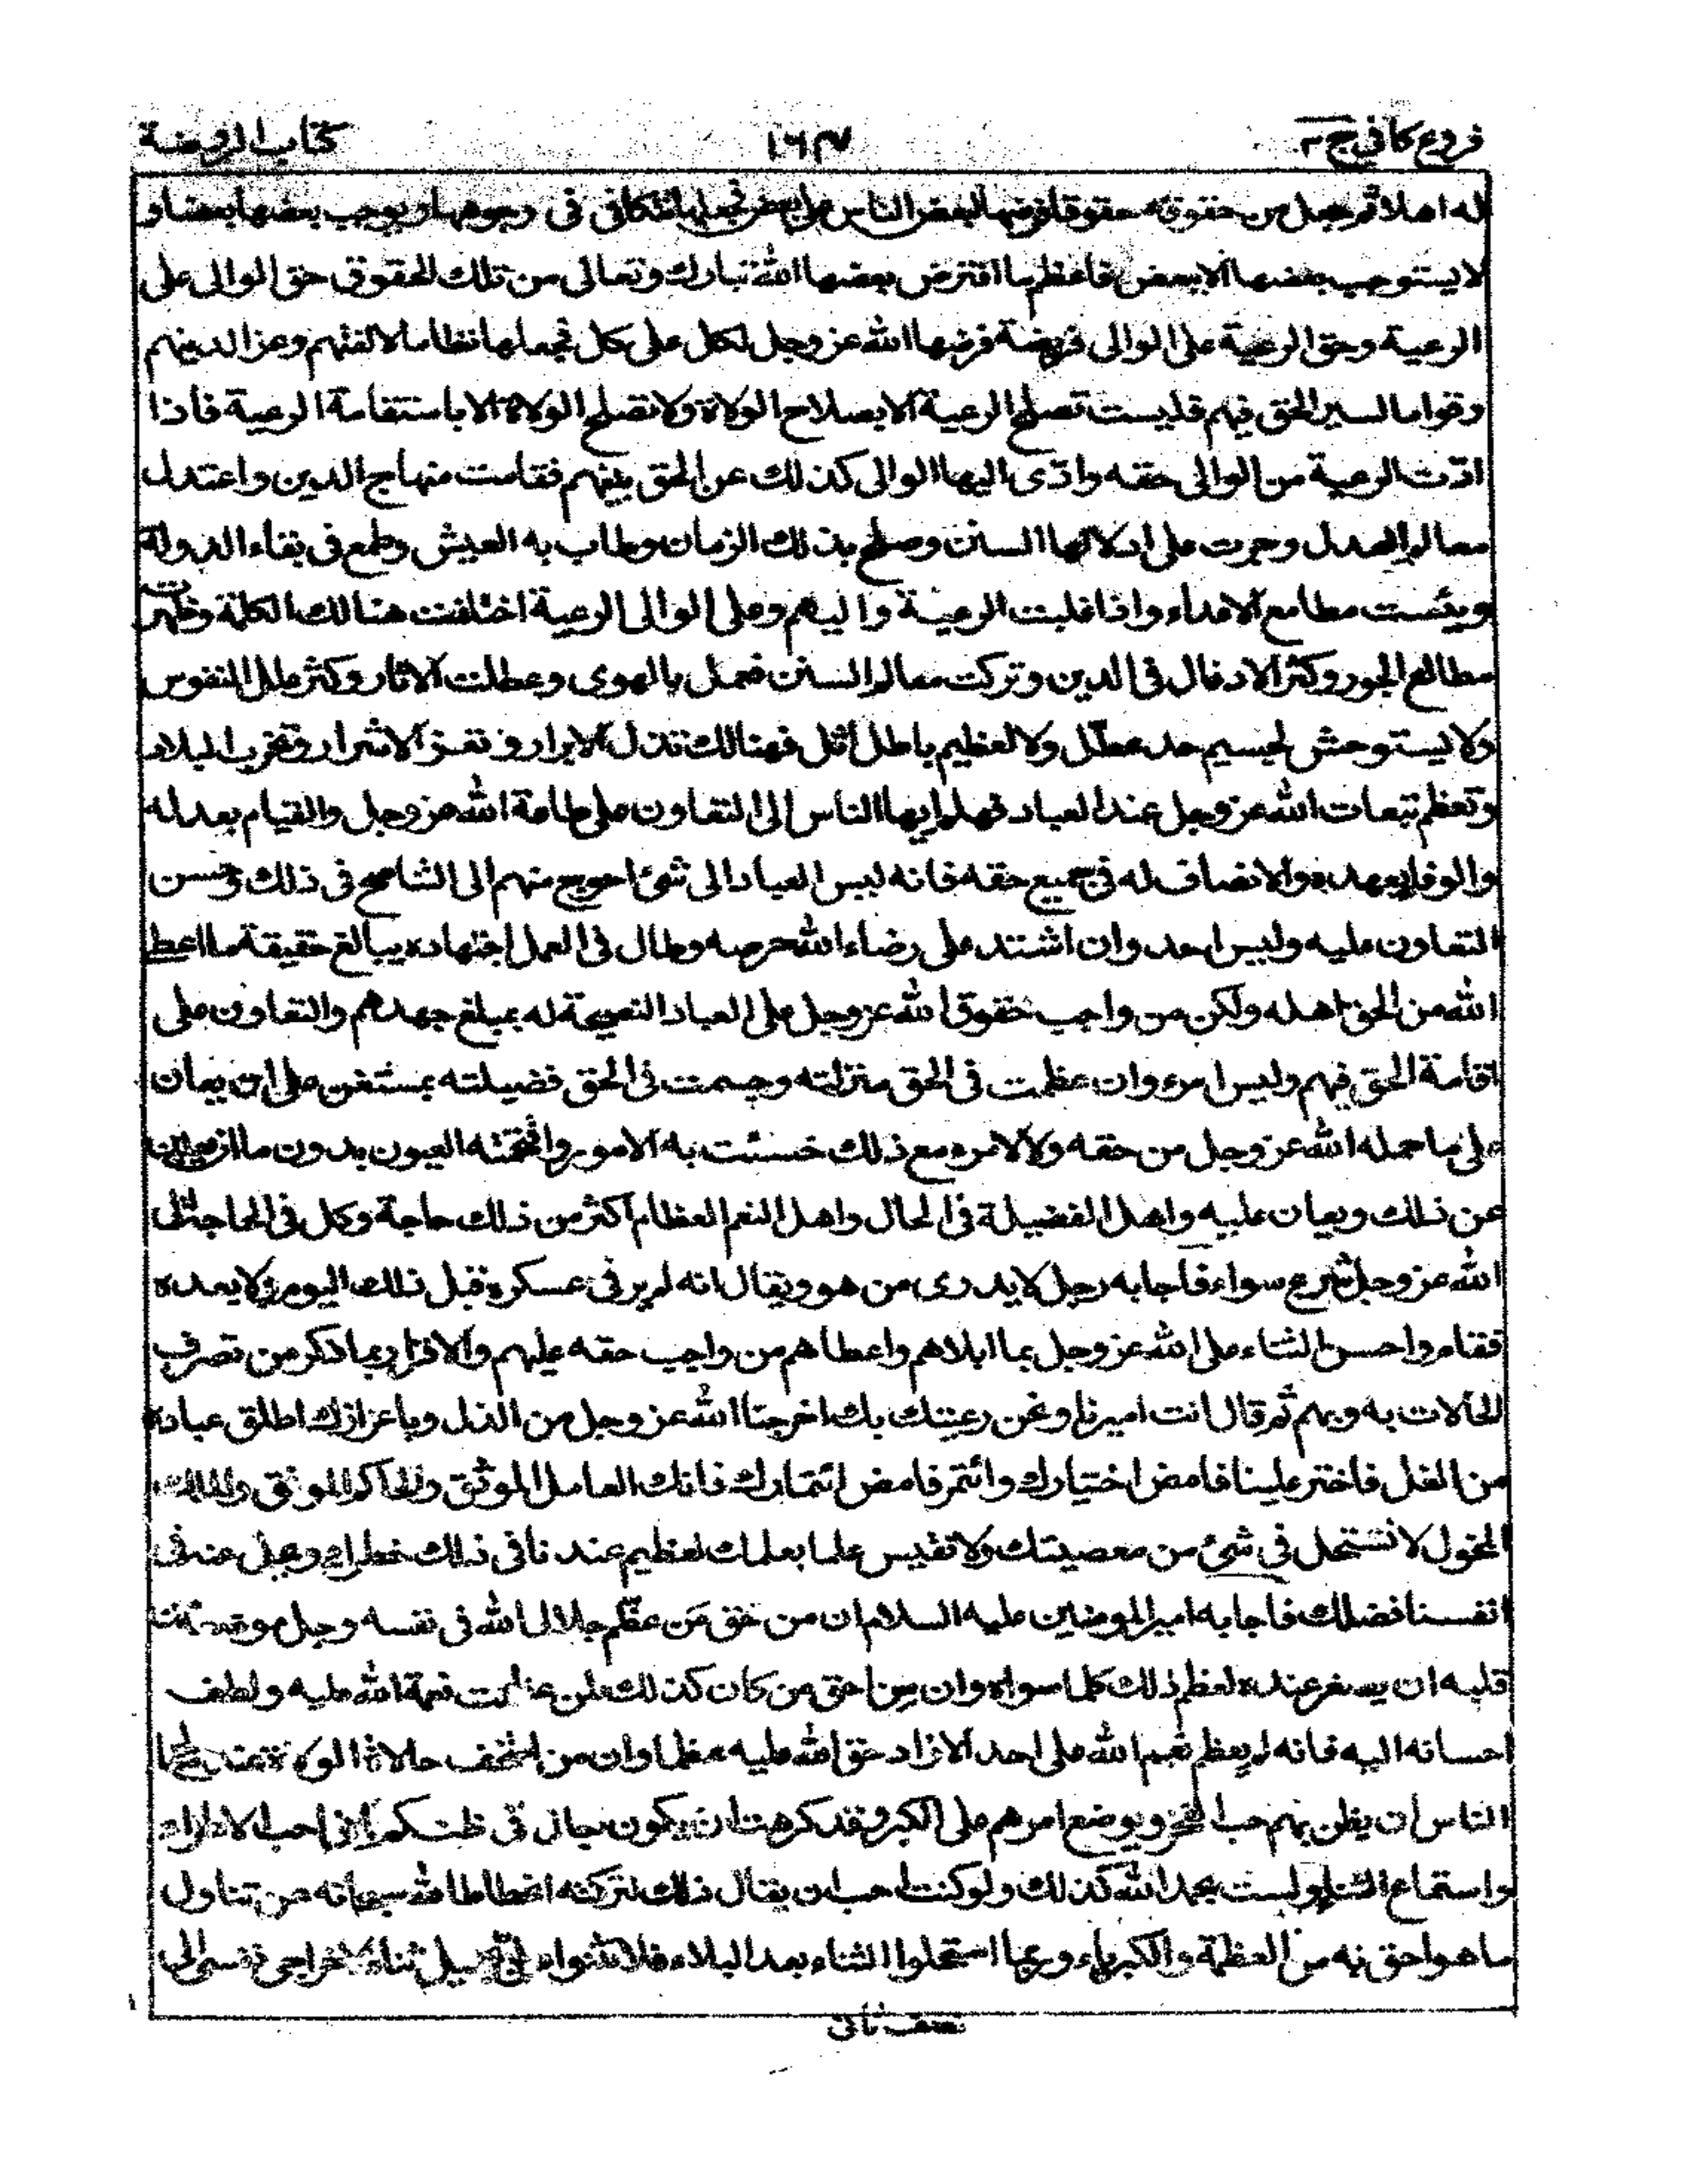 فروع كافي ج ٣
١٦٧
كتاب الروضة
له اهلا ثم جعل من حقوقه حقوقا فرضها لبعض الناس على بعض فجعلها تتكافى فى وجوهها ويوجب بعضها بعضا و
لا يستوجب بعضها الا ببعض فاعظم ما افترض بعضها الله تبارك وتعالى من تلك الحقوق حق الوالى على
الرعية وحق الرعية على الوالى فريضة فرضها الله عز وجل لكل على كل فجعلها نظاما لالفتهم وعزا لدينهم
وقواما لسير الحق فيهم فليست تصلح الرعية الا بصلاح الولاة ولا تصلح الولاة الا باستقامة الرعية فاذا
ادّت الرعية من الوالى حقه وادّى اليها الوالى كذلك عز الحق بينهم فقامت منهاج الدين واعتدل
معالم العدل وجرت على اذلالها السنن وصلح بذلك الزمان وطاب به العيش وطمع فى بقاء الدولة
ويئست مطامع الاعداء واذا غلبت الرعية واليهم وعلى الوالى الرعية اختلفت هنالك الكلمة وظهرت
مطالع الجور وكثر الادغال فى الدين وتركت معالم السنن فعمل بالهوى وعطلت الاثار وكثر علل النفوس
ولا يستوحش لجسيم حد عطّل ولا لعظيم باطل اثل فهنالك تذل الابرار وتعز الاشرار وتخرب البلاد
وتعظم تبعات الله عز وجل عند العباد فهلم ايها الناس الى التعاون على طاعة الله عز وجل والقيام بعدله
والوفاء بعهده والانصاف له فى جميع حقه فانه ليس العباد الى شئ احوج منهم الى التناصح فى ذلك وحسن
التعاون عليه وليس احد وان اشتد على رضاء الله حرصه وطال فى العمل اجتهاده ببالغ حقيقة ما اعطى
الله من الحق اهله ولكن من واجب حقوق الله عز وجل على العباد النصيحة له بمبلغ جهدهم والتعاون على
اقامة الحق فيهم وليس امرء وان عظمت فى الحق منزلته وجسمت فى الحق فضيلته بمستغن على ان يعان
على ما حمله الله عز وجل من حقه ولا لامرء مع ذلك خسئت به الامور واقتحمته العيون بدون ما ان يعين
عن ذلك ويعان عليه واهل الفضيلة فى الحال واهل النعم العظام اكثر من ذلك حاجة وكل فى الحاجة الى
الله عز وجل شرع سواء فاجابه رجل لا يدرى من هو ويقال انه لم ير فى عسكره قبل ذلك اليوم ولا بعده
فقام واحسن الثناء على الله عز وجل بما ابلاهم واعطاهم من واجب حقه عليهم والاقرار بما ذكر من تصرف
الحالات به وبهم ثم قال انت اميرنا ونحن رعيتك بك اخرجنا الله عز وجل من الذل وباعزازك اطلق عباده
من الغل فاختر علينا فامض اختيارك وائتمر فامض ائتمارك فانك العامل الموثق والحاكم الموفق والملك
المخول لا نستحل فى شئ من معصيتك ولا نقيس علما بعلمك لعظيم عندنا فى ذلك خطرك وجل عنه فى
انفسنا فضلك فاجابه امير المومنين عليه السلام ان من حق مَن عظّم جلال الله فى نفسه وجل موقعه من
قلبه ان يصغر عنده لعظم ذلك كلما سواه وان من احق من كان كذلك لمن عظمت نعمة الله عليه ولطف
احسانه اليه فانه لم يعظم نعم الله على احد الا زاد حق الله عليه عظما وان من اسخف حالات الولاة عند صالح
الناس ان يظن بهم حب الفخر ويوضع امرهم على الكبر وقد كرهت ان يكون جال فى ظنكم انى احب الاطراء
واستماع الثناء ولست بحمد الله كذلك ولو كنت احب ان يقال ذلك لتركته انحطاطا لله سبحانه عن تناول
ما هو احق به من العظمة والكبرياء وربما استحلوا الثناء بعد البلاء فلا تثنوا على بجميل ثناء لاخراجى نفسى الى
نصف ثانى